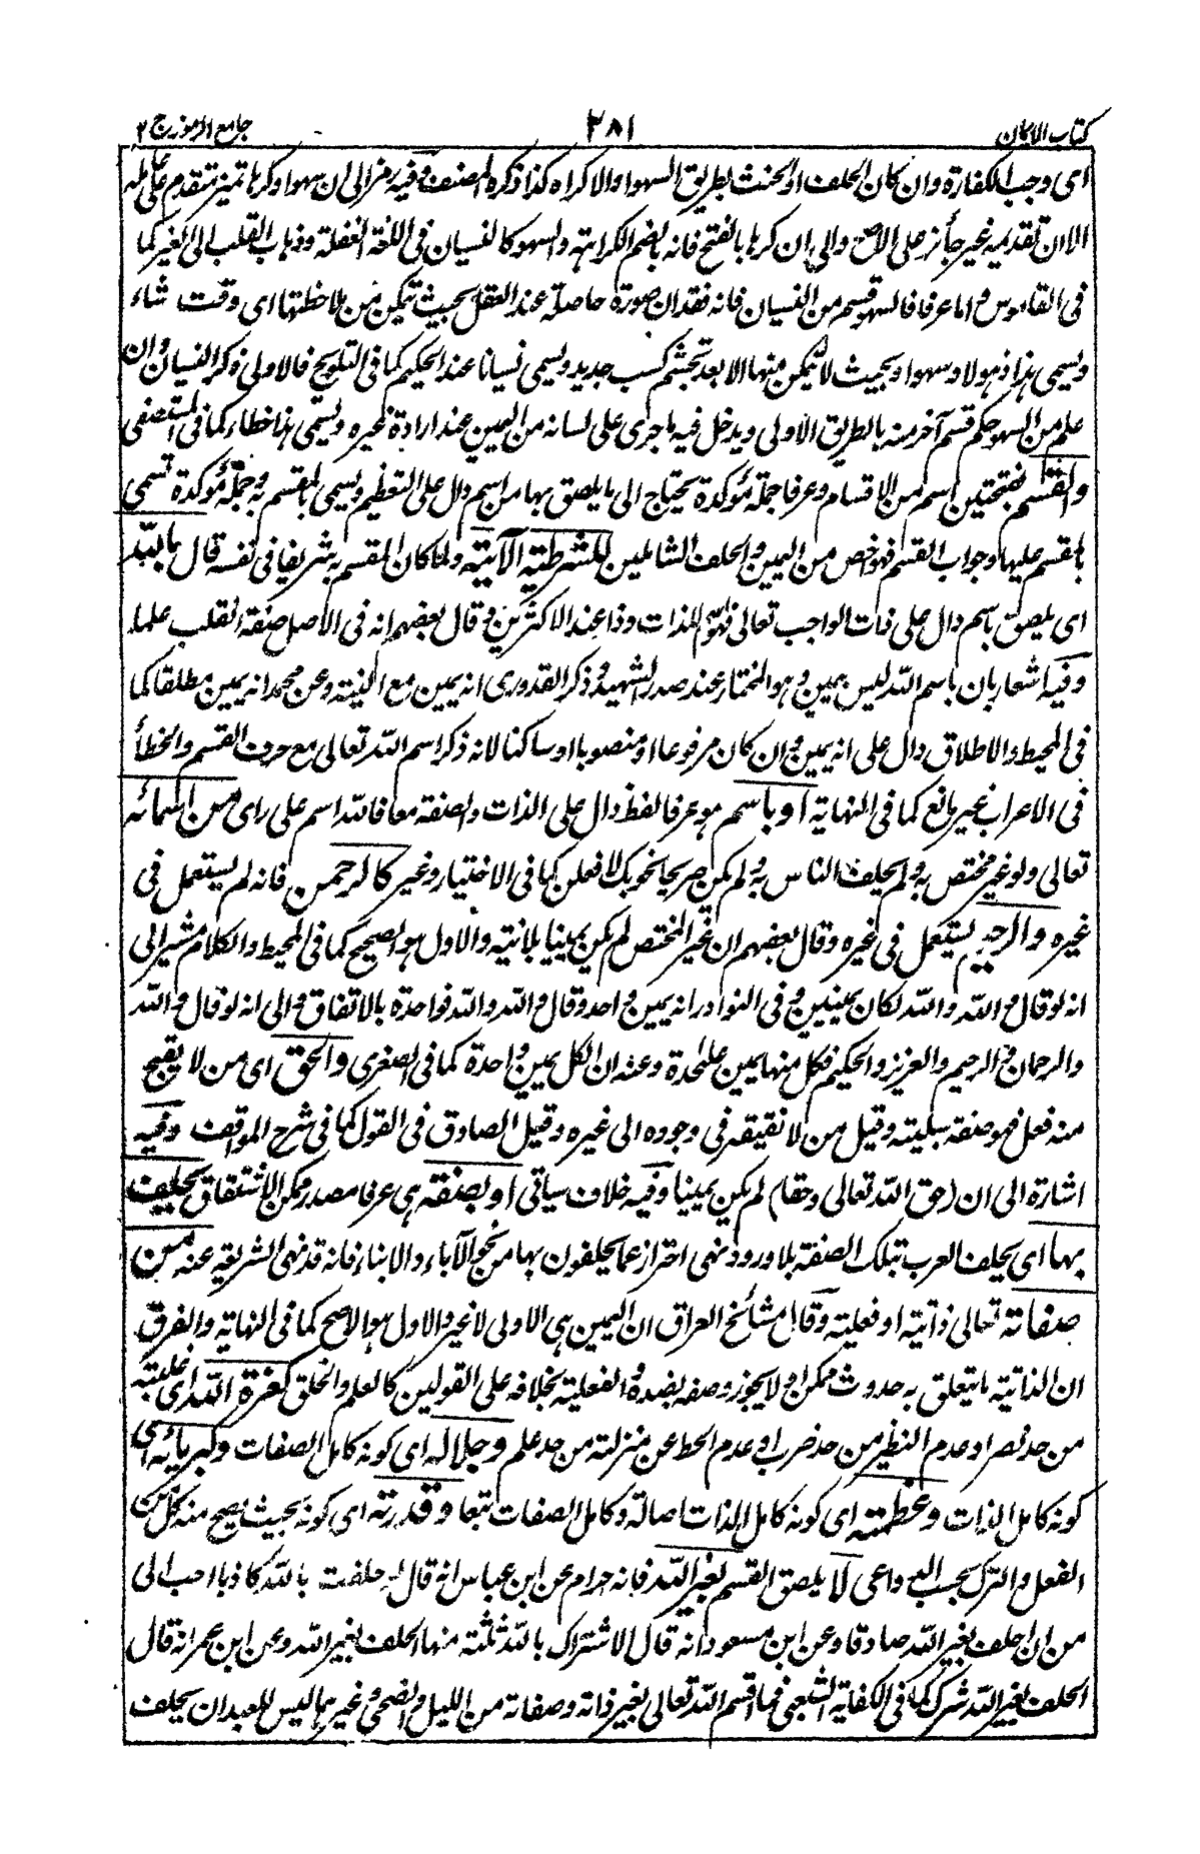 كتاب الايمان ٣٨١ جامع الرموز ج ٢
اى وجب الكفارة وان كان الحلف او الحنث بطريق السهو او الاكراه كذا ذكره المصنف وفيه رمز الى ان سهوا وكرها تميز متقدم على عامله
الا ان تقديمه غير جائز على الاصح والى ان كرها بالفتح فانه بالضم الكراهة والسهو كالنسيان فى اللغة الغفلة وذهاب القلب الى الغير كما
فى القاموس واما عرفا فالسهو قسم من النسيان فانه فقدان صورة حاصلة عند العقل بحيث تيمكن من ملاحظتها اى وقت شاء
ويسمى هذا ذهولا وسهوا وبحيث لا تيمكن منها الا بعد تجشم كسب جديد ويسمى نسيانا عند الحكيم كما فى التلويح فالاولى ذكر النسيان وان
علم من السهو حكم قسم آخر منه بالطريق الاولى ويدخل فيه ما جرى على لسانه من اليمين عند ارادة غيره ويسمى هذا خطاء كما فى المستصفى
والقسم بفتحتين اسم من الاقسام وعرفا جملة مؤكدة يحتاج الى ما يلصق بها من اسم دال على التعظيم ويسمى المقسم به وجملة مؤكدة تسمى
بالمقسم عليها وجواب القسم فهو اخص من اليمين والحلف الشاملين للشرطية الآتية ولما كان المقسم به شريفا فى نفسه قال بالله
اى يلصق باسم دال على ذات الواجب تعالى فهو اسم للذات وذا عند الاكثرين وقال بعضهم انه فى الاصل صفة انقلب علما
وفيه اشعار بان باسم الله ليس بيمين وهو المختار عند صدر الشهيد وذكر القدورى انه يمين مع النية وعن محمد انه يمين مطلقا كما
فى المحيط والاطلاق دال على انه يمين وان كان مرفوعا او منصوبا او ساكنا لانه ذكر اسم الله تعالى مع حرف القسم والخطأ
فى الاعراب غير مانع كما فى النهاية او باسم هو عرفا لفظ دال على الذات والصفة معا فالله اسم على راى من اسمائه
تعالى ولو غير مختص به ولم يحلف الناس به ولم يكن صريحا نحو بك لافعلن كما فى الاختيار وغيره كالرحمن فانه لم يستعمل فى
غيره والرحيم يستعمل فى غيره وقال بعضهم ان غير المختص لم يكن يمينا بلا نية والاول هو الصحيح كما فى المحيط والكلام مشير الى
انه لو قال والله والله لكان يمينين وفى النوادر انه يمين واحد وقال والله والله فواحدة بالاتفاق والى انه لو قال والله
والرحمان والرحيم والعزيز والحكيم فكل منها يمين علٰحدة وعنه ان الكل يمين واحدة كما فى الصغرى والحق اى من لا يقبح
منه فعل فهو صفة سلبية وقيل من لا يفتقر فى وجوده الى غيره وقيل الصادق فى القول كما فى شرح المواقف وفيه
اشارة الى ان (حق الله تعالى وحقا) لم يكن يمينا وفيه خلاف سياتى او بصفة هى عرفا مصدر ممكن الاشتقاق يحلف
بها اى يحلف العرب بتلك الصفة بلا ورود نهى احتراز عما يحلفون بها من نحو الآباء والابناء فانه قد نهى الشريعة عنه من
صفاته تعالى ذاتية او فعلية وقال مشائخ العراق ان اليمين هى الاولى لا غير والاول هو الاصح كما فى النهاية والفرق
ان الذاتية ما يتعلق به حدوث ممكن او لا يجوز وصفه بضده والفعلية بخلافه على القولين كالعلم والخلق كعزة الله اى غلبته
من حد نصر او عدم النظير من حد ضرب او عدم الحط عن منزلته من حد علم وجلاله اى كونه كامل الصفات وكبريائه اى
كونه كامل الذات وعظمته اى كونه كامل الذات اصالة وكامل الصفات تبعا وقدرته اى كونه بحيث يصح منه كل من
الفعل والترك بحسب الدواعى لا يلصق القسم بغير الله فانه حرام عن ابن عباس انه قال لو حلفت بالله كاذبا احب الى
من ان احلف بغير الله صادقا وعن ابن مسعود انه قال الاشتراك بالله ثلثة منها الحلف بغير الله وعن ابن عمر انه قال
الحلف بغير الله شرك كما فى الكفاية الشعبى فما اقسم الله تعالى بغير ذاته وصفاته من الليل والضحى وغيرهما ليس للعبد ان يحلف